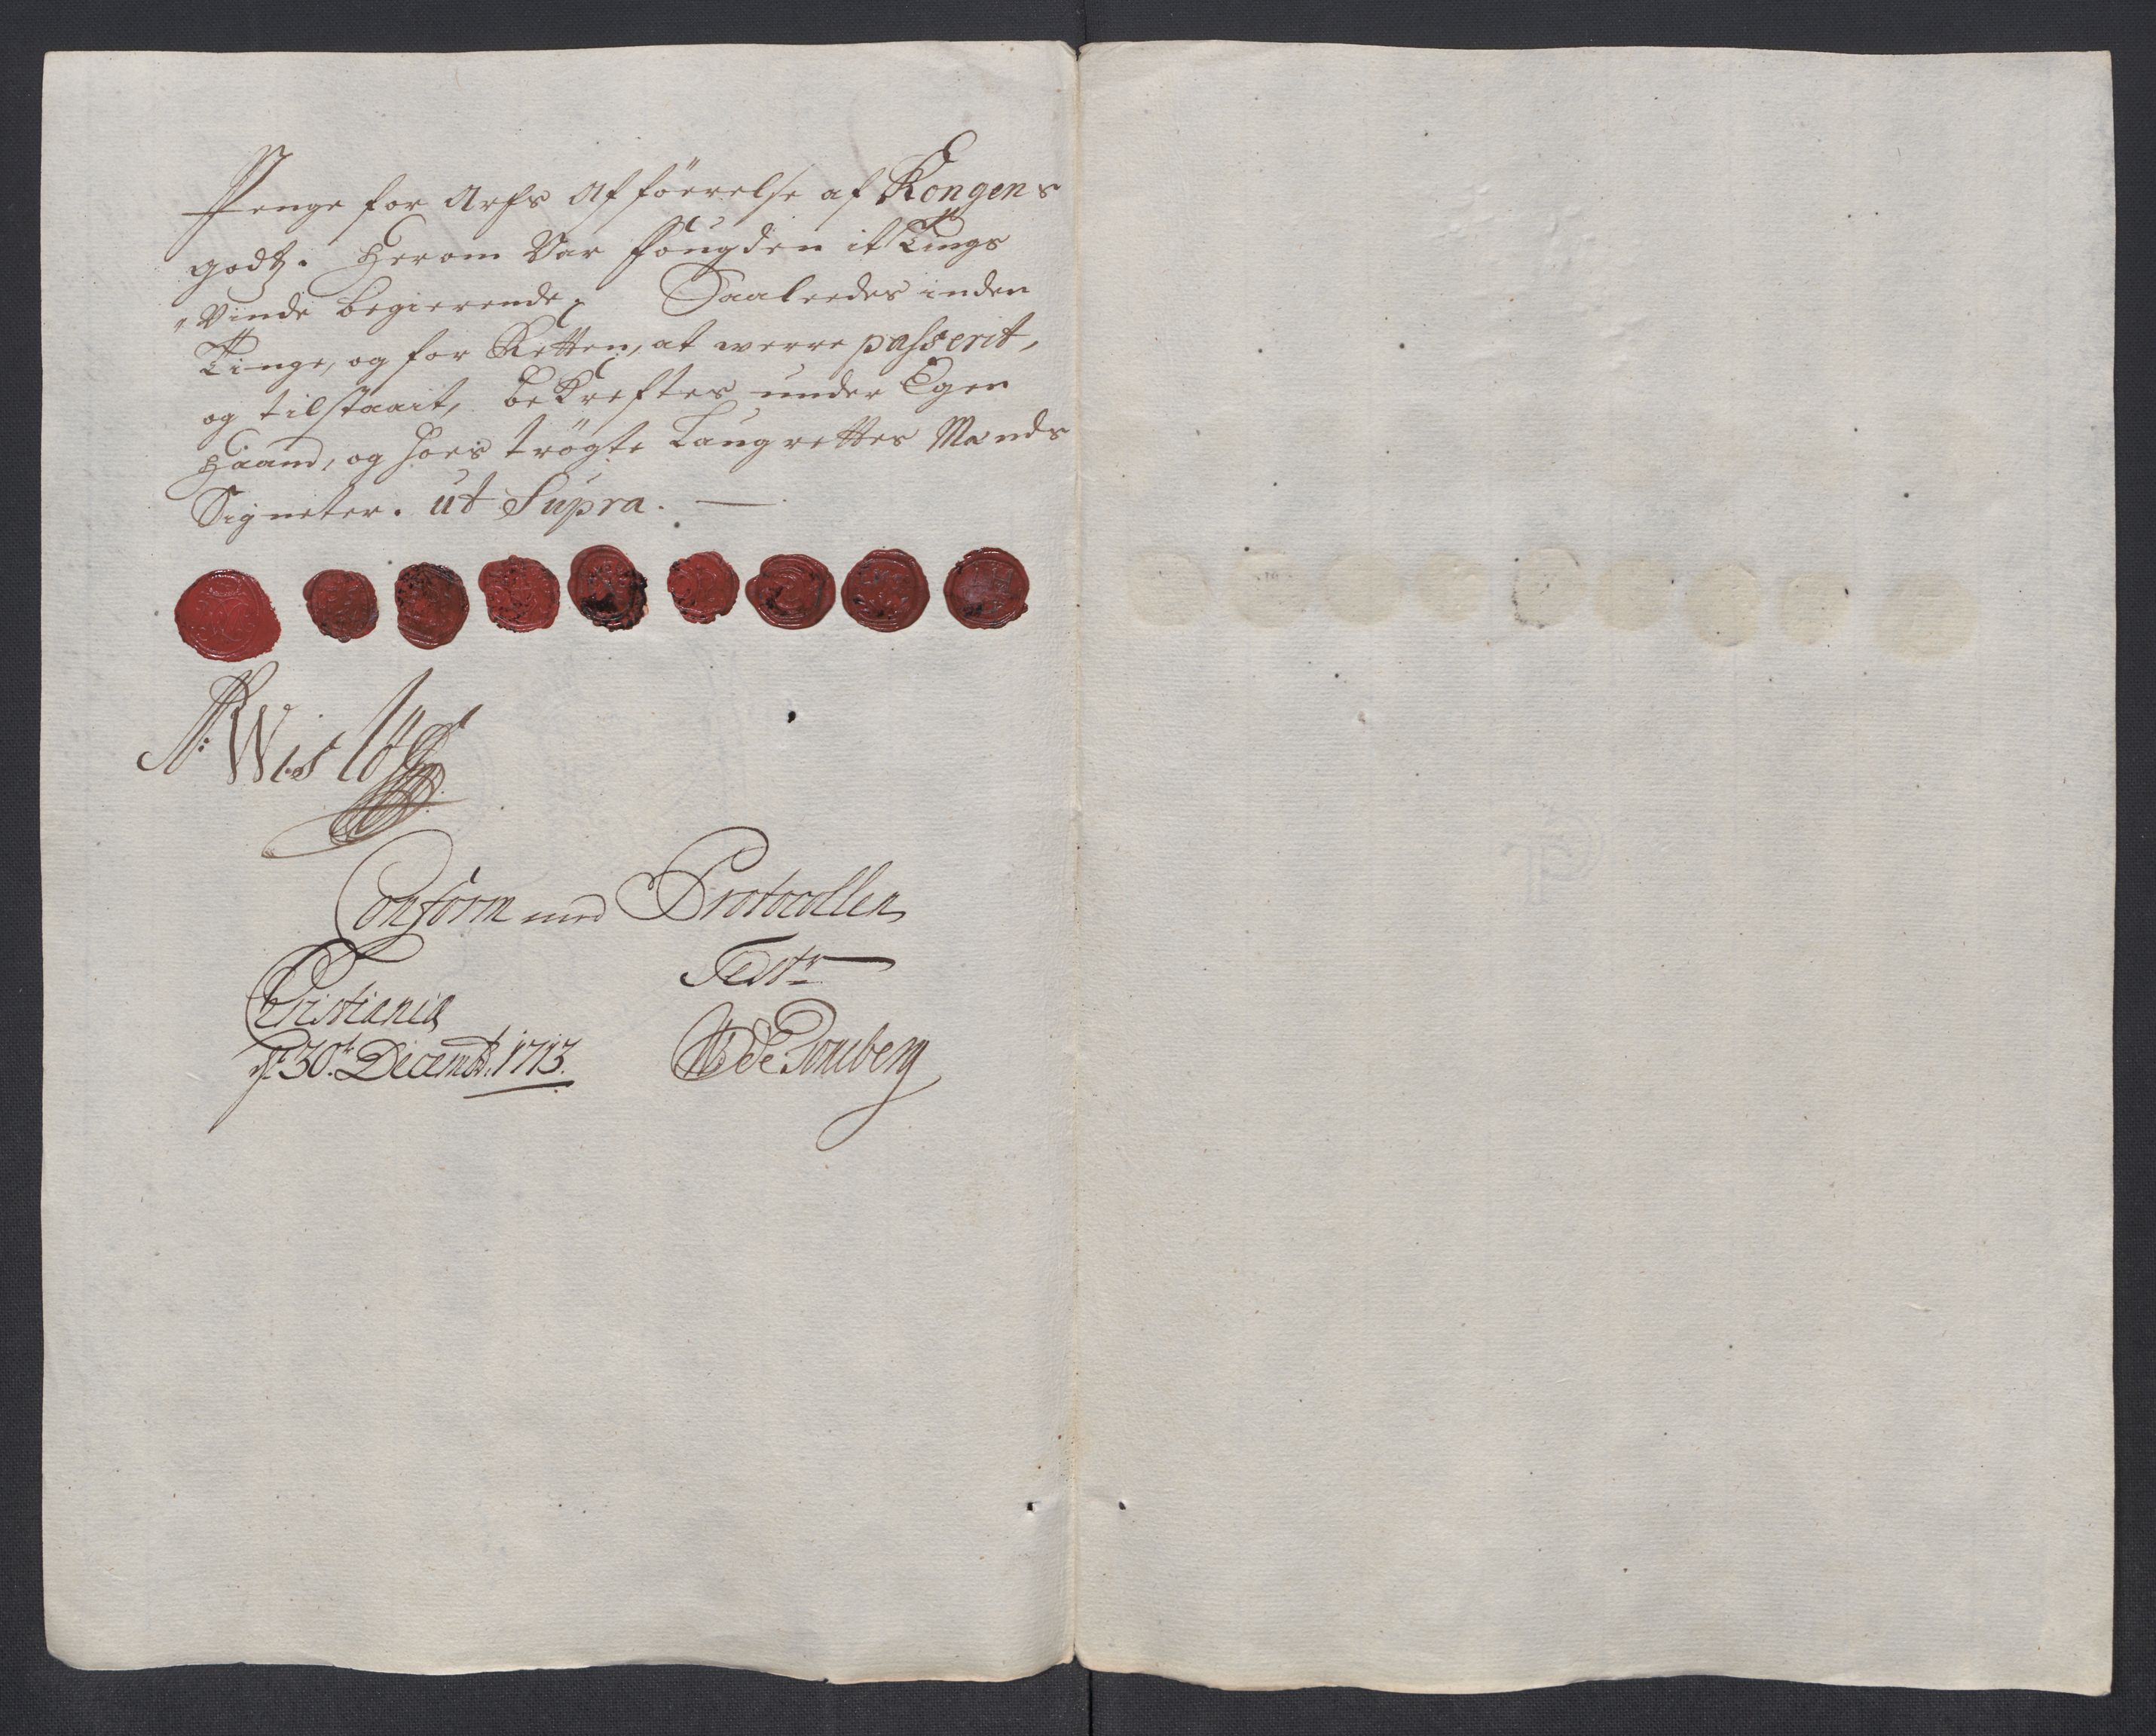 Penge for Arfs Afföerelse af Kongens
godtz. Herom Var fougden it Tings
"Vinde begierende, Saaleedes inden
Tinge, og for Retten, at werre passerit,
og tilstaait, beKreftes under Egen
Haand, og hoes trögte Laugrettes Mænds
Signeter. ut Supra. —
Conform med Protocollen
Test
Cristiania
d. 30t Decembr. 1713.